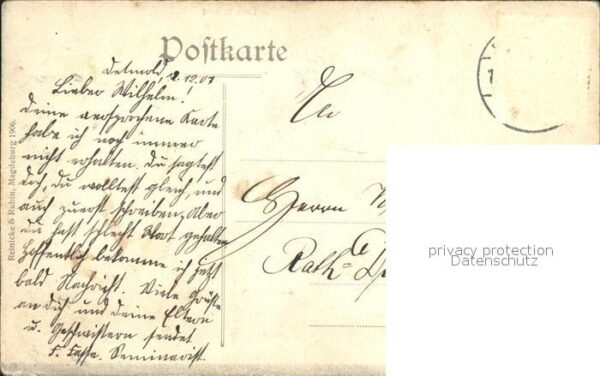 Postkarte
Detmold, 2.12.07
Lieber Wilhelm!
Deine versprochene Karte
habe ich noch immer
nicht erhalten. Du sagtest
doch, du wolltest gleich, und
auch zuerst schreiben. Aber
du hast schlecht Wort gehalten
Hoffentlich bekomme ich jetzt
bald Nachricht. Viele Grüße
an dich und deine Eltern
u. Geschwistern sendet
F. Seminarist.
An
Herrn
Reinicke & Rubin, Magdeburg 1906.
privacy protection
Datenschutz